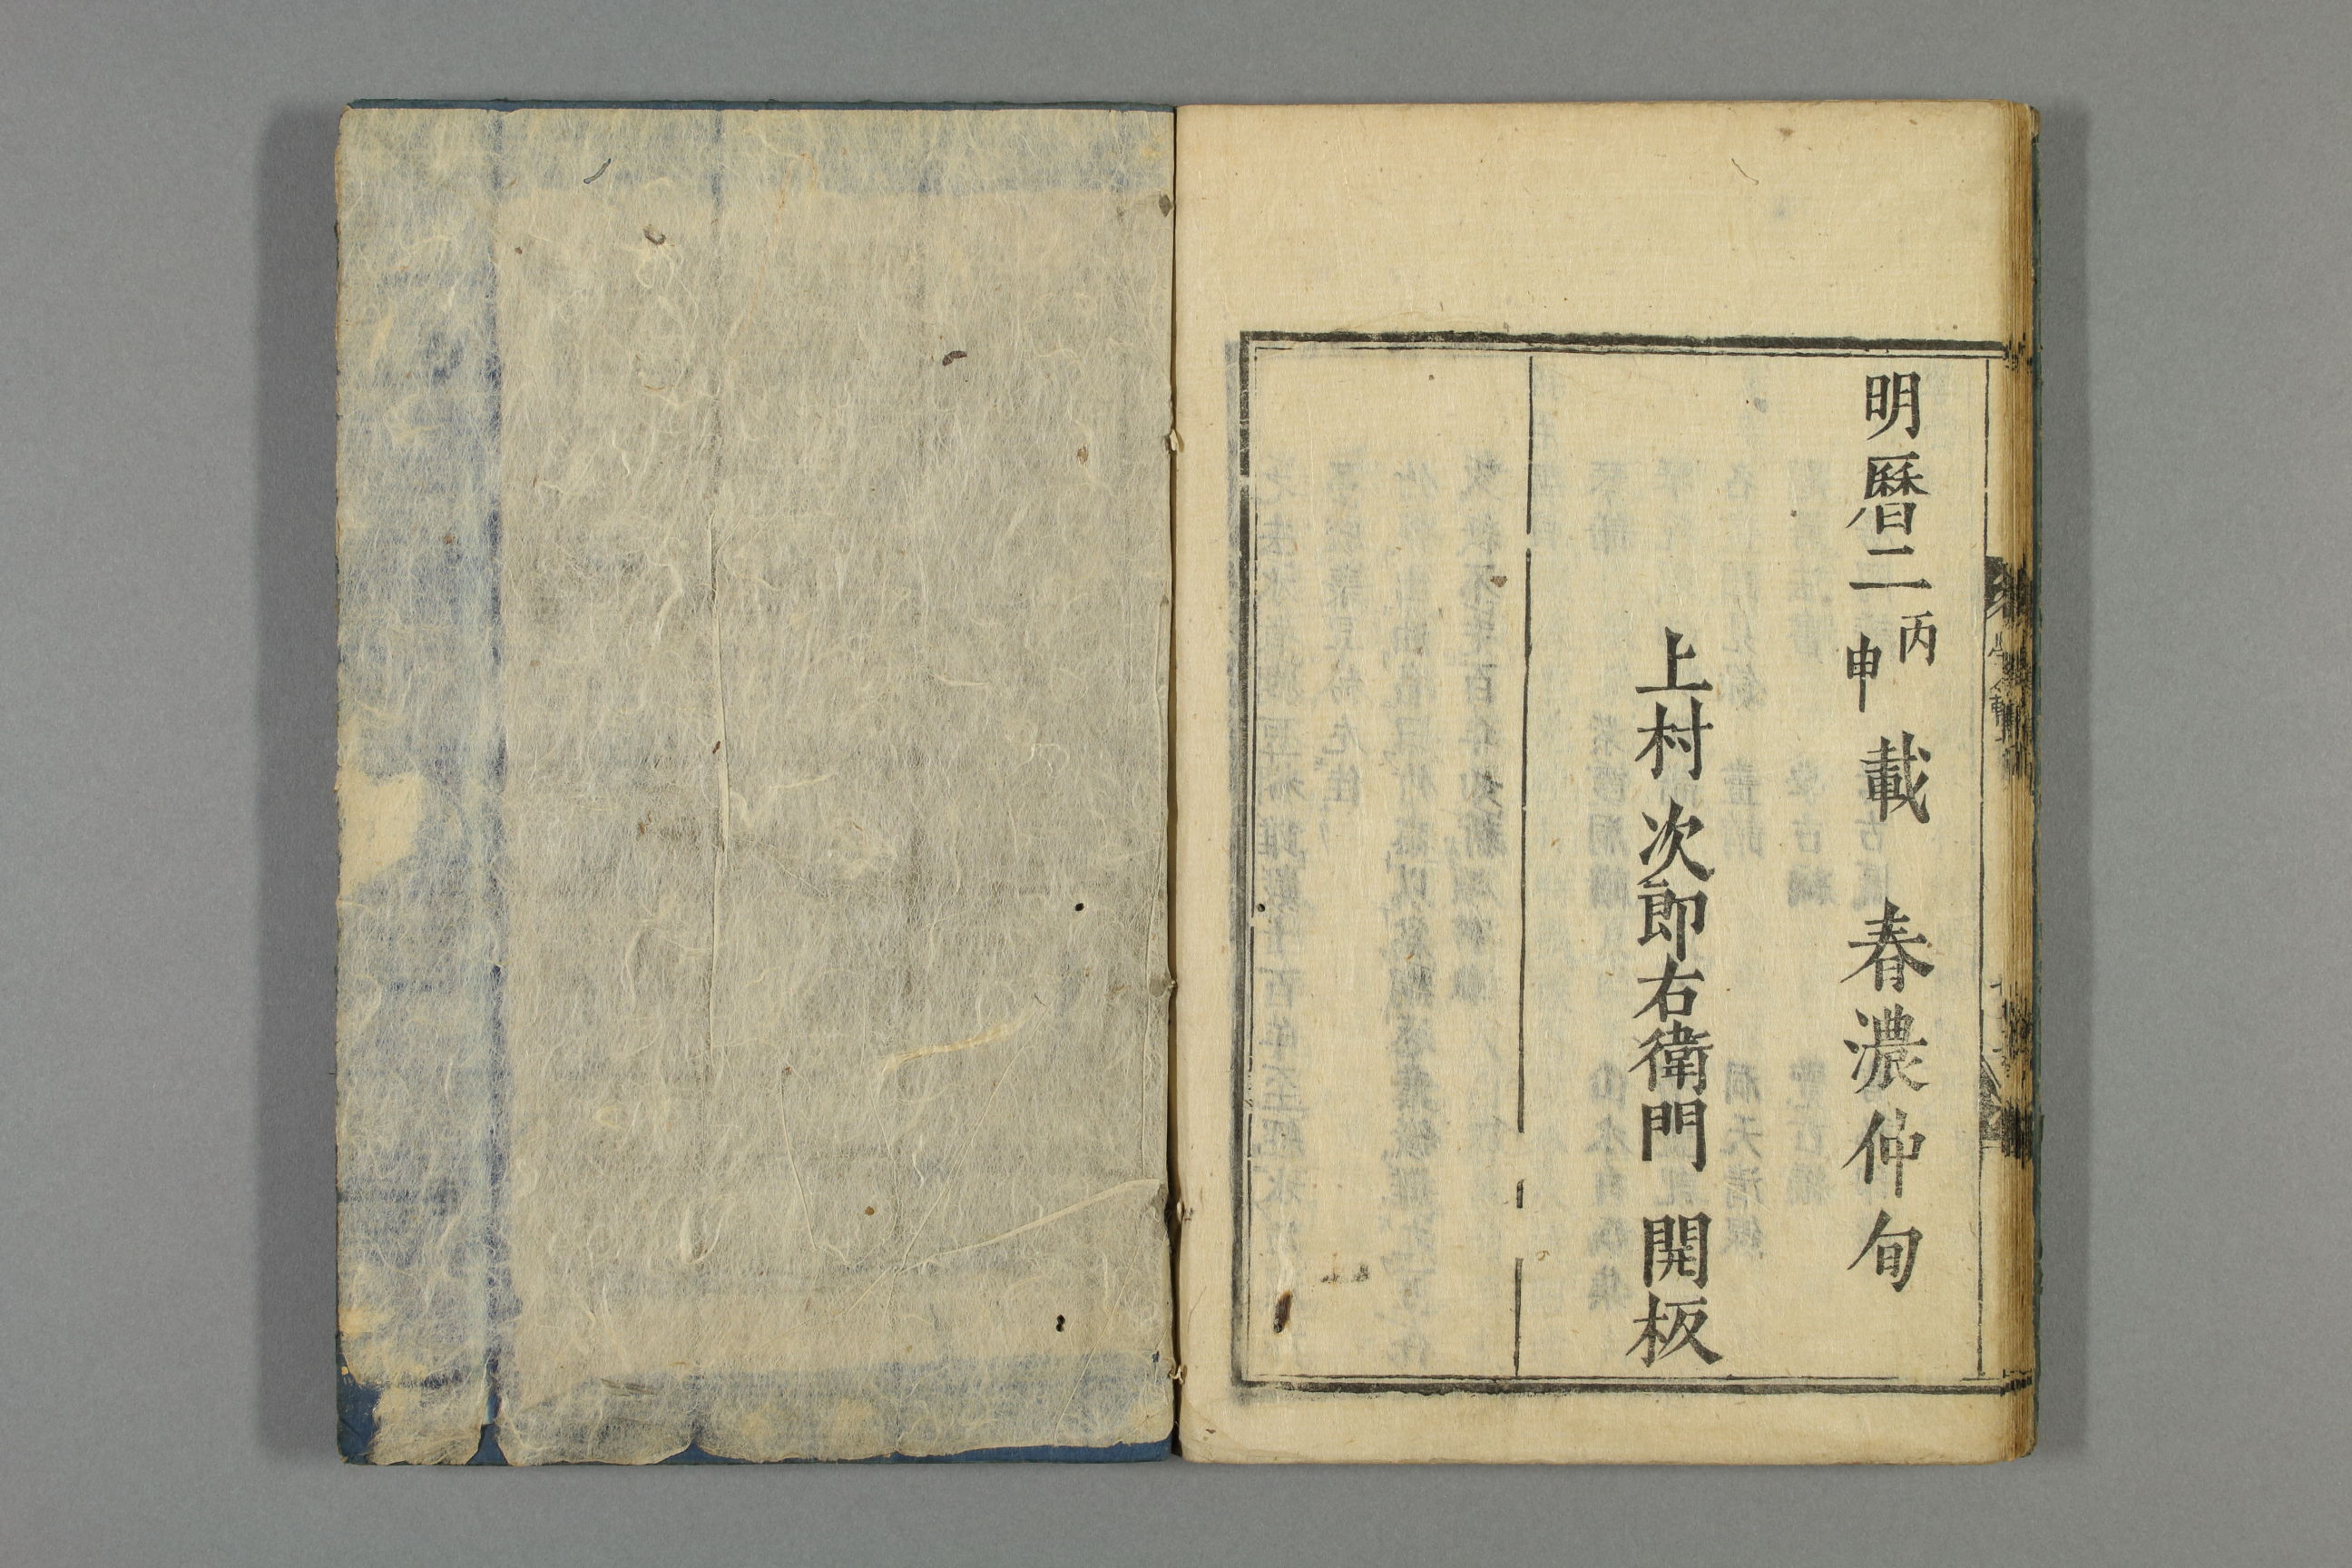 明曆二丙申載 春濃仲旬
上村次郎右衛門開板